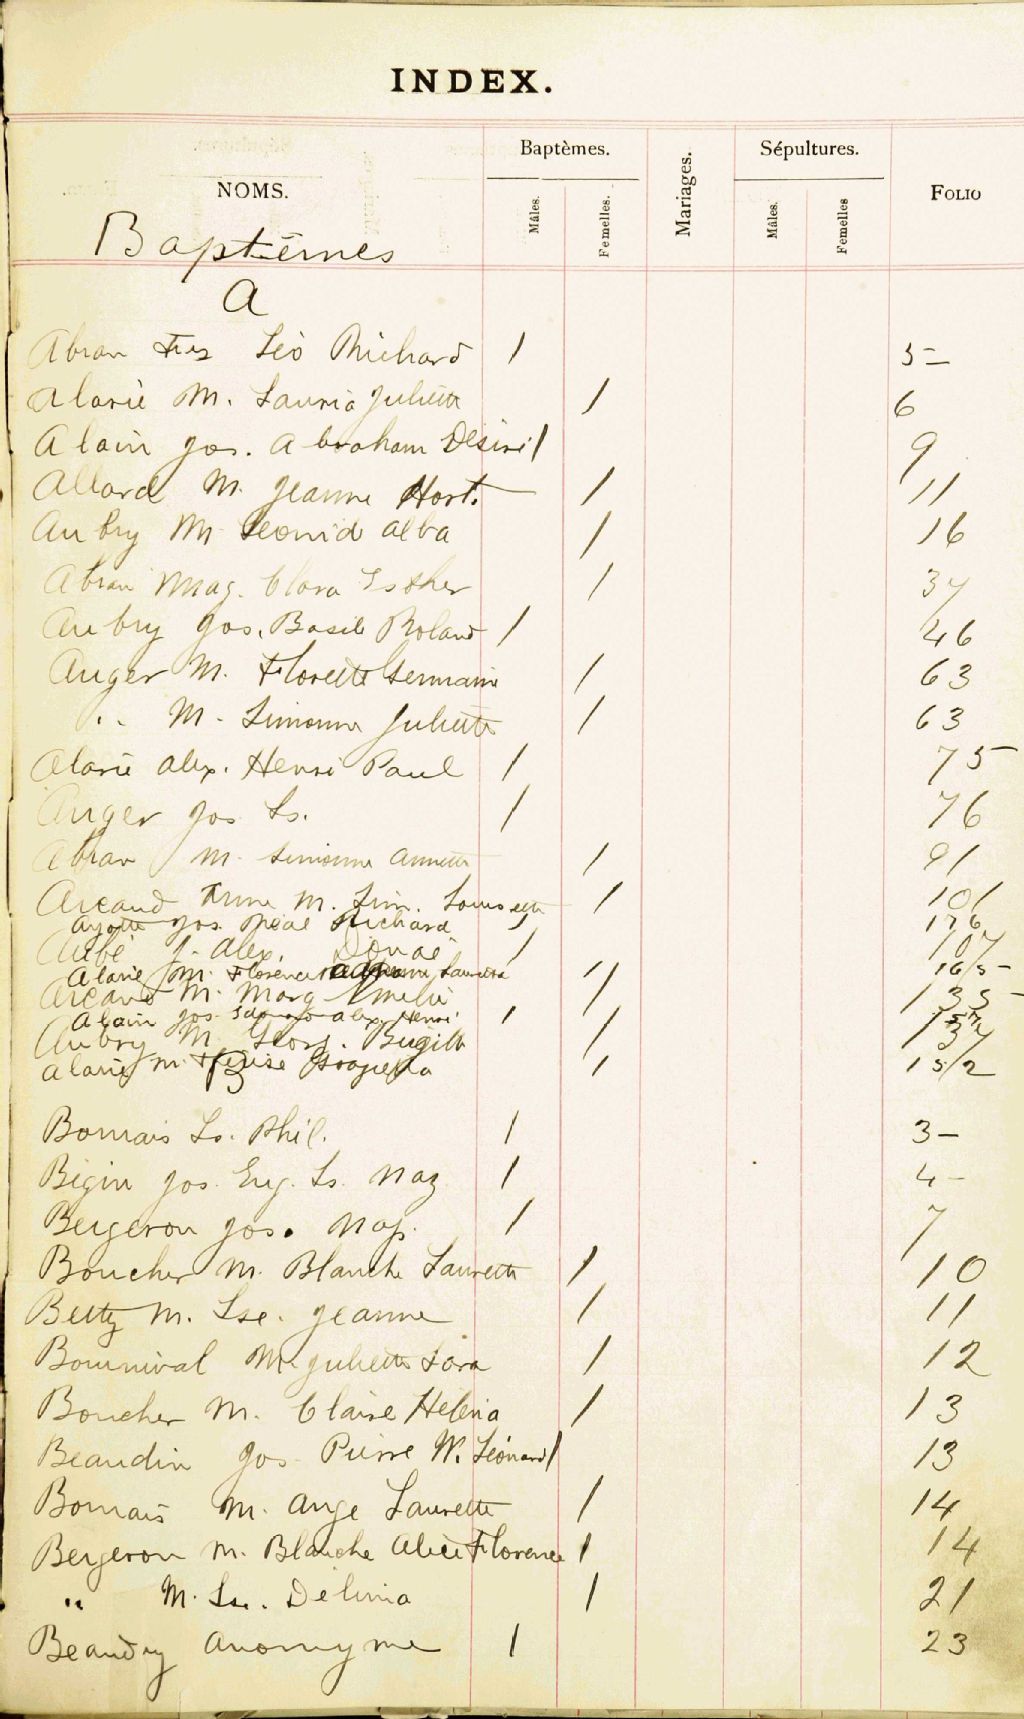 INDEX.
NOMS.
Baptèmes.
Mâles.
Femelles.
Mariages.
Sépultures.
Mâles.
Femelles
FOLIO
Baptêmes
A
Abran Frs Léo Richard / 5
Alarie M. Lauria Juliette / 6
Alain Jos. Abraham Désiré / 9
Allard M. Jeanne Hort. / 11
Aubry M. Leonid Alba / 16
Abran Mag. Clara Esther / 37
Aubry Jos. Basile Roland / 46
Auger M. Florette Germaine / 63
" M. Simonne Juliette / 63
Alarie Alex. Henri Paul / 75
Auger Jos Ls. / 76
Abran M. Simonne Annette / 91
Arcand M. Sim. / 101
Ayotte Jos. Réal Richard / 176
Aubé J. Alex. / 107
Alarie M. Florence Lauretta / 165
Arcand M. Marg Emélie / 135
Alain Jos. Alex. Henri /
Aubry M. Georg. / 137
Alarie M. / 152
B
Bornais Ls. Phil. / 3
Bigin Jos. Eug. Ls. Naz / 4
Bergeron Jos. Nap. / 7
Boucher M. Blanche Laurette / 10
Betty M. Lse. Jeanne / 11
Bournival M. Juliette Lora / 12
Boucher M. Claire Helena / 13
Beaudin Jos Pierre W. Léonard / 13
Bornais M. Ange Laurette / 14
Bergeron M. Blanche Alice Florence / 14
" M. Lse. Délima / 21
Beaudry Anonyme / 23